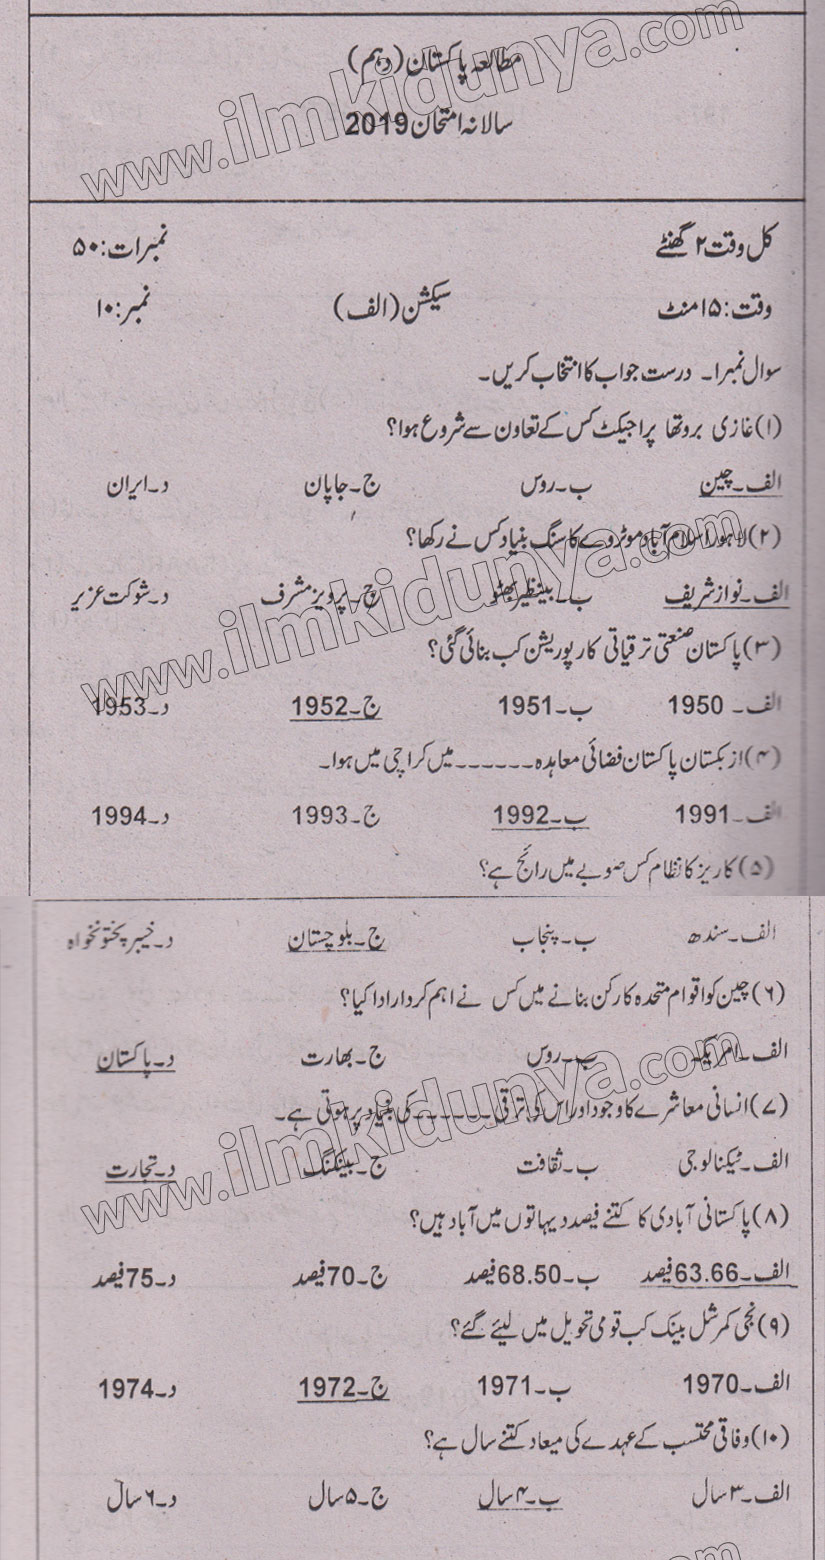 مطالعہ پاکستان (دہم)
سالانہ امتحان 2019
کل وقت ۲ گھنٹے نمبرات: ۵۰
وقت: ۱۵ منٹ سیکشن (الف) نمبر: ۱۰
سوال نمبر ۱۔ درست جواب کا انتخاب کریں۔
(۱) غازی بروتھا پراجیکٹ کس کے تعاون سے شروع ہوا؟
الف۔ چین ب۔ روس ج۔ جاپان د۔ ایران
(۲) لاہور اسلام آباد موٹروے کا سنگ بنیاد کس نے رکھا؟
الف۔ نواز شریف ب۔ بینظیر بھٹو ج۔ پرویز مشرف د۔ شوکت عزیر
(۳) پاکستان صنعتی ترقیاتی کارپوریشن کب بنائی گئی؟
الف۔ 1950 ب۔ 1951 ج۔ 1952 د۔ 1953
(۴) ازبکستان پاکستان فضائی معاہدہ ۔۔۔۔۔۔ میں کراچی میں ہوا۔
الف۔ 1991 ب۔ 1992 ج۔ 1993 د۔ 1994
(۵) کاریز کا نظام کس صوبے میں رائج ہے؟
الف۔ سندھ ب۔ پنجاب ج۔ بلوچستان د۔ خیبر پختونخواہ
(۶) چین کو اقوام متحدہ کا رکن بنانے میں کس نے اہم کردار ادا کیا؟
الف۔ امریکہ ب۔ روس ج۔ بھارت د۔ پاکستان
(۷) انسانی معاشرے کا وجود اور اس کی ترقی ۔۔۔۔۔۔ کی بنیاد پر ہوتی ہے۔
الف۔ ٹیکنالوجی ب۔ ثقافت ج۔ بینکنگ د۔ تجارت
(۸) پاکستانی آبادی کا کتنے فیصد دیہاتوں میں آباد ہیں؟
الف۔ 63.66 فیصد ب۔ 68.50 فیصد ج۔ 70 فیصد د۔ 75 فیصد
(۹) نجی کمرشل بینک کب قومی تحویل میں لیئے گئے؟
الف۔ 1970 ب۔ 1971 ج۔ 1972 د۔ 1974
(۱۰) وفاقی محتسب کے عہدے کی میعاد کتنے سال ہے؟
الف۔ ۳ سال ب۔ ۴ سال ج۔ ۵ سال د۔ ۶ سال
www.ilmkidunya.com
www.ilmkidunya.com
www.ilmkidunya.com